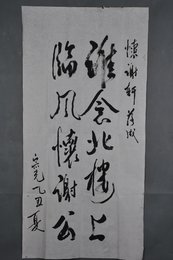 懷謝軒落成
誰念北樓上
臨風懷謝公
乙丑夏